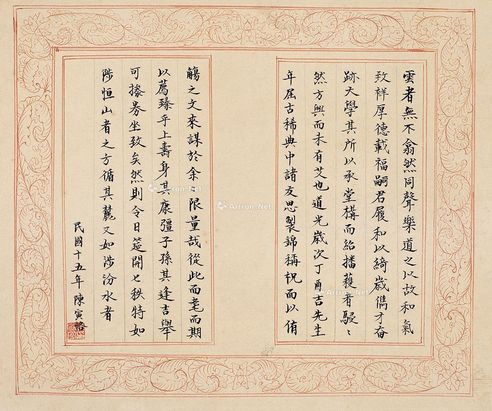 雲者無不翕然同聲樂道之以故和氣
致祥厚德載福嗣君履和以綺歲儁才奮
跡天學其所以承堂構而紹播穫者駸〻
然方興而未有艾也道光歲次丁酉吉先生
年屆古稀典中諸友思製錦稱祝而以侑
觴之文來謀於余余限量哉從此而耄而期
以薦臻乎上壽身其康彊子孫其逢吉舉
可操券坐致矣然則今日筵開七秩特如
陟恒山者之方循其麓又如涉汾水者
民國十五年 陳寅恪